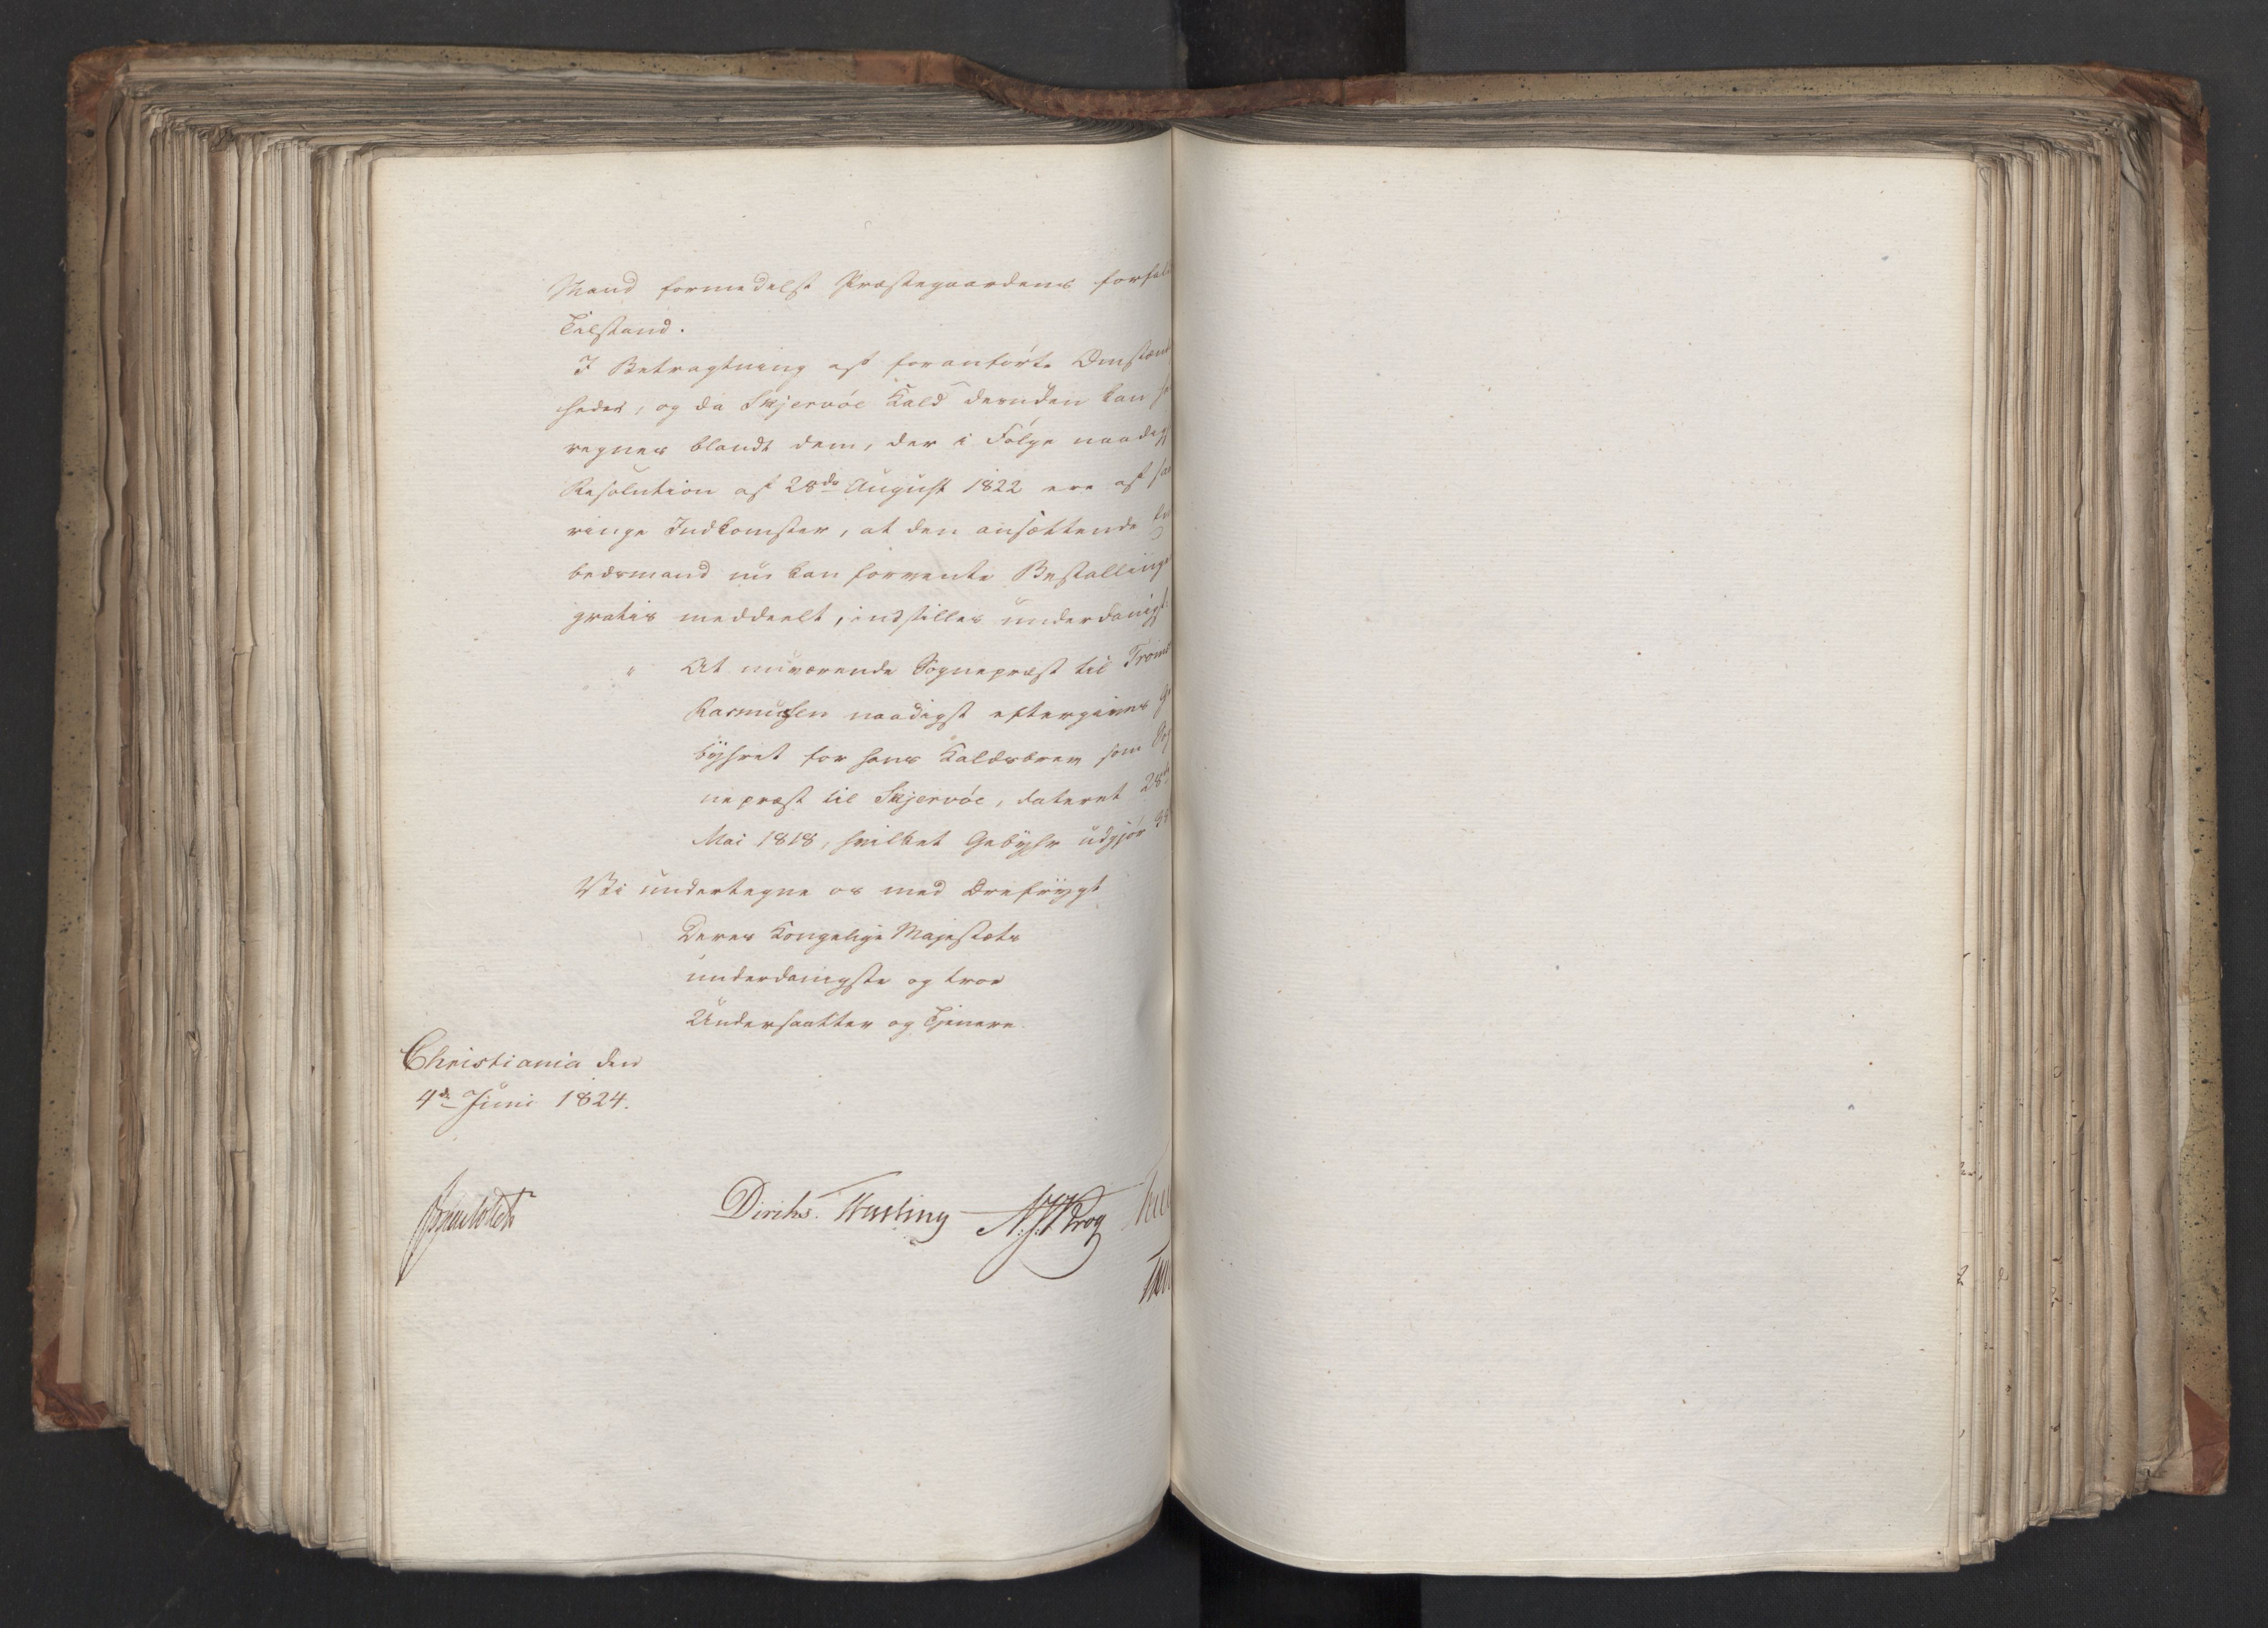 Mand formedelst Præstegaardens forfal
Tilstand.
I Betragtning af foranførte Omstæn
heder, og da Skjervøe Kald desuden kan
regnes blandt dem, der i Følge naadig
Resolution af 28de August 1822 ere af saa
ringe Indkomster, at den ansættende Em
bedsmand nu kan forvente Bestalling
gratis meddeelt, indstilles underdanigst:
" At nuværende Sognepræst til Troms
Rasmussen naadigst eftergives Ge
byhret for hans Kaldsbrev som Sog
nepræst til Skjervöe, dateret 28de
Mai 1818, hvilket Gebyhr udgjör
Vi undertegne os med Ærefrygt
Deres Kongelige Majestæts
underdanigste og troe
Undersaatter og Tjenere.
Christiania den
4de Juni 1824.
Diriks. N.J.Krog